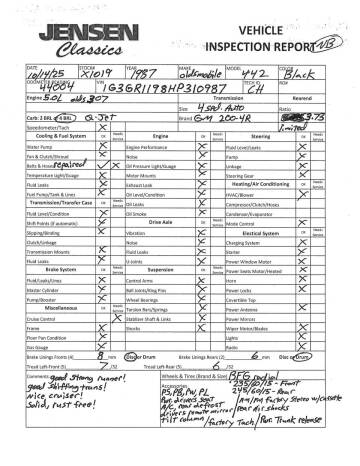 JENSEN
Classics
VEHICLE
INSPECTION REPORT NB
DATE 10/14/25 STOCK# X1019 YEAR 1987 MAKE oldsmobile MODEL 442 COLOR Black
ODOMETER READING 44004 VIN 1G3GR1198HP310987 TECH ID CH RO#
Engine 5.0L olds 307 Transmission Rearend
Size 4 spd. Auto Ratio
Carb: 2 BRL 4 BRL Q-Jet Brand GM 200-4R 3.73
Speedometer/Tach X limited
Cooling & Fuel System OK Needs Service Engine OK Needs Service Steering OK Needs Service
Water Pump X Engine Performance X Fluid Level/Leaks X
Fan & Clutch/Shroud X Noise X Pump X
Belts & Hoses repaired ✓ X Oil Pressure Light/Guage X Linkage X
Temperature Light/Guage X Motor Mounts X Steering Gear X
Fluid Leaks X Exhaust Leak X Heating/Air Conditioning OK Needs Service
Fuel Pump/Tank & Lines X Oil Level/Condition X HVAC/Blower X
Transmission/Transfer Case OK Needs Service Oil Leaks X Compressor/Clutch/Hoses
Fluid Level/Condition X Oil Smoke X Condenser/Evaporator
Shift Points (if automatic) X Drive Axle OK Needs Service Mode Control X
Slipping/Binding X Vibration X Electical System OK Needs Service
Clutch/Linkage Noise X Charging System X
Transmission Mounts X Fluid Leaks X Starter X
Fluid Leaks X U-Joints X Power Window Motor X
Brake System OK Needs Service Suspension OK Needs Service Power Seats Motor/Heated X
Fluid/Leaks/Lines X Control Arms X Horn X
Master Cylinder X Ball Joints/King Pins X Power Locks X
Pump/Booster X Wheel Bearings X Covertible Top
Miscellaneous OK Needs Service Torsion Bars/Springs X Power Antenna X
Cruise Control X Stabilizer Shaft & Links X Power Mirrors X
Frame X Shocks X Wiper Motor/Blades X
Floor Pan Condition X Lights X
Gas Gauge X Radio X
Brake Linings Fronts (4) 8 mm Disc or Drum Brake Linings Rears (2) 6 mm Disc or Drum
Tread Left-Front (5) 7 /32 Tread Left-Rear (6) 6 /32
Comments good strong runner! Wheels & Tires (Brand & Size) BFG radial
good shifting trans! Accessories 235/60/15 - Front
Nice cruiser! PS, PB, PW, PL 245/60/15 - Rear
Solid, rust free! Pwr. drivers seat Am/Fm Factory stereo w/cassette
A/C, rear defrost rear air shocks
drivers remote mirror
tilt column factory Tach Pwr. Trunk release